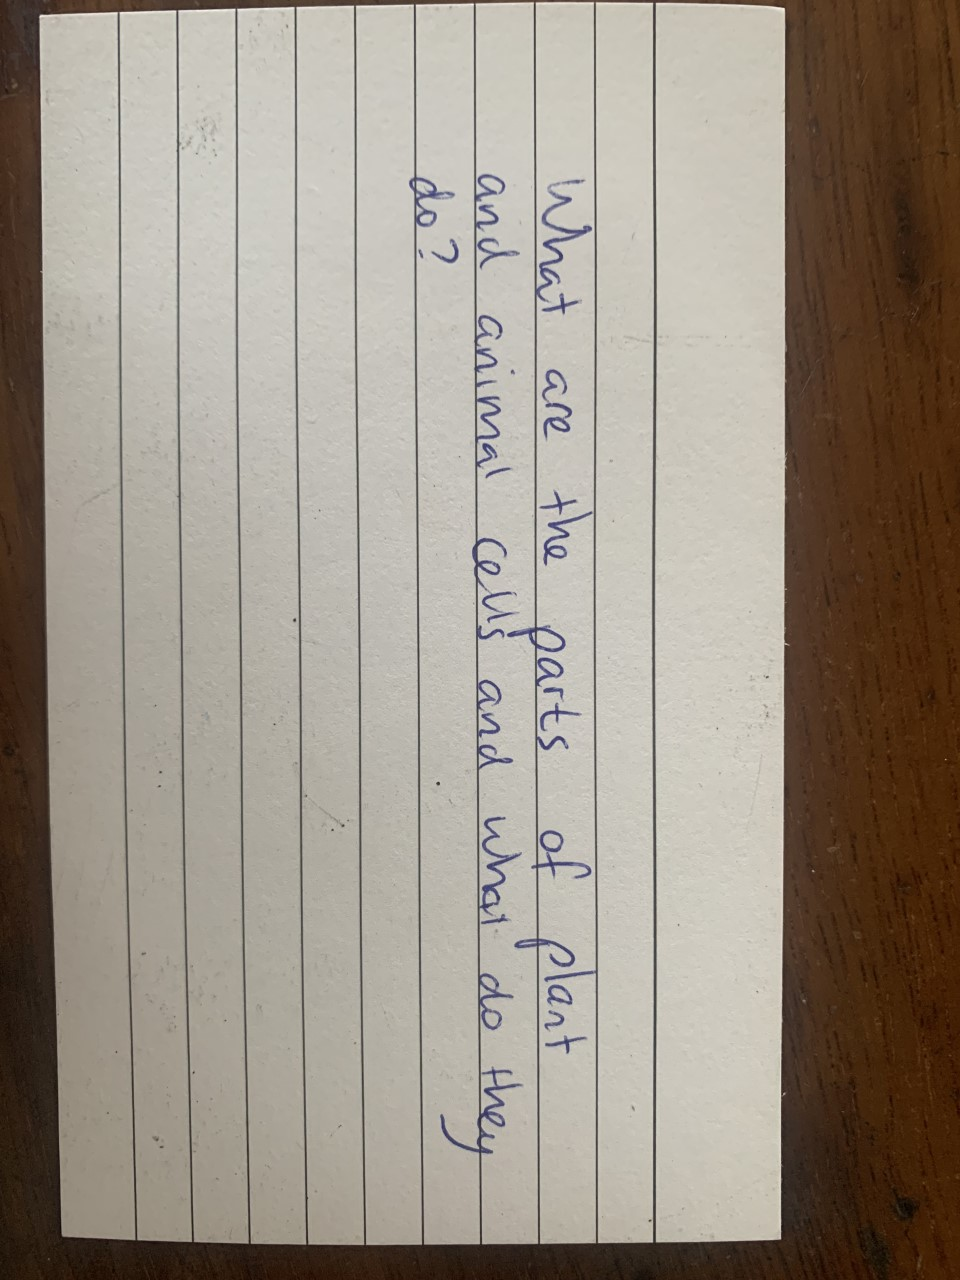 What are the parts of plant
and animal cells and what do they
do?